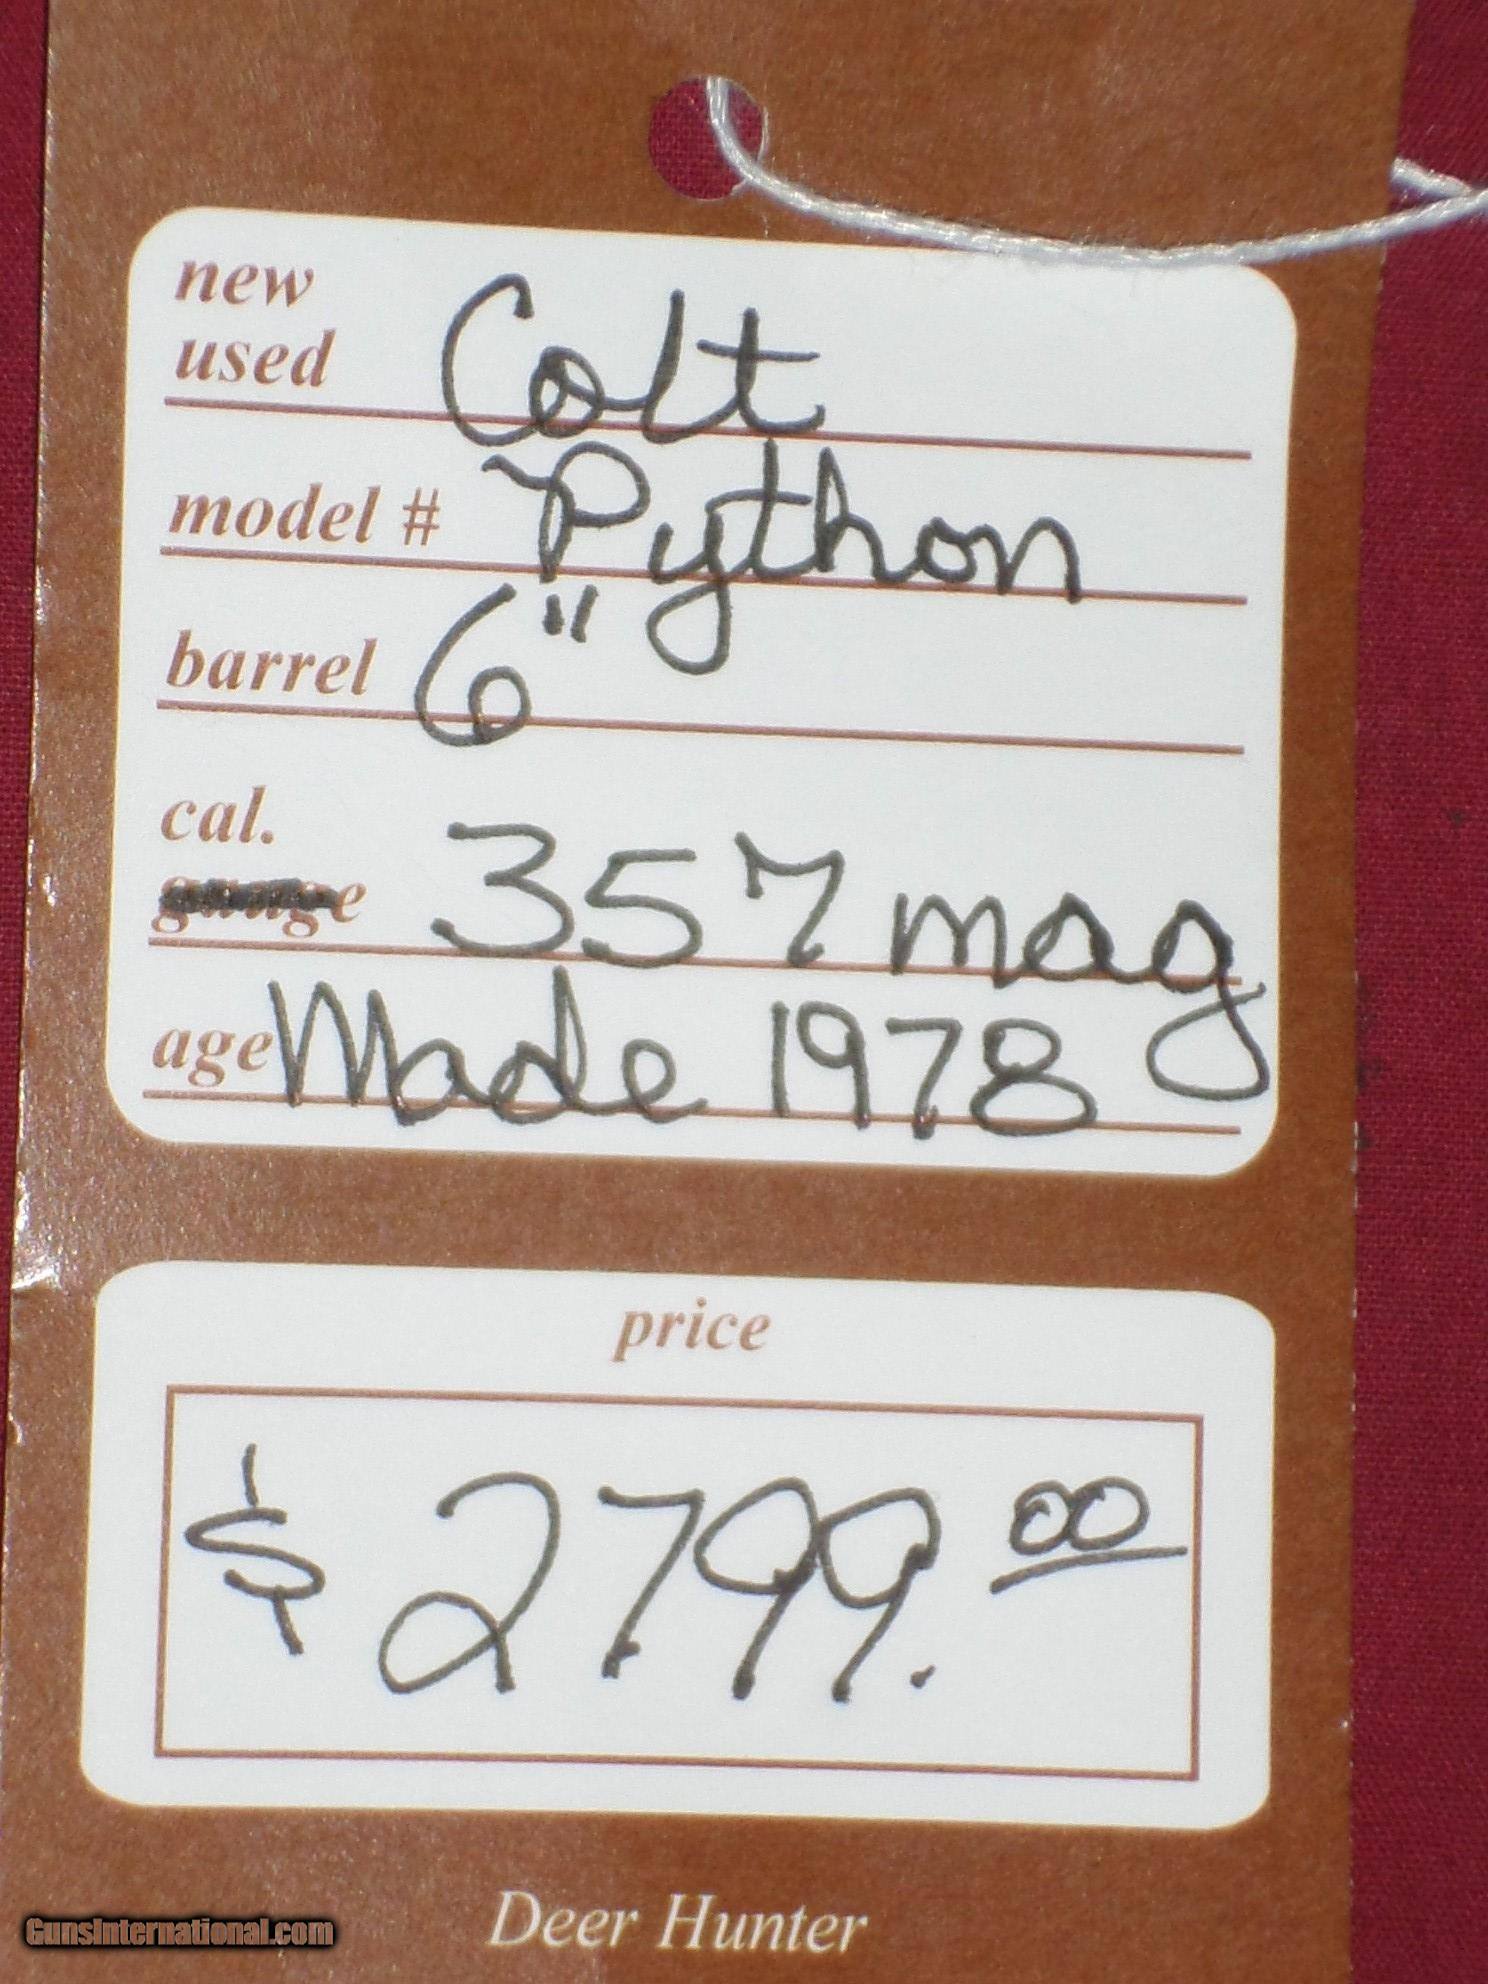 new
used Colt
model # Python
barrel 6"
cal.
gauge 357 mag
age Made 1978
price
$ 2799.00
Deer Hunter
GunsInternational.com